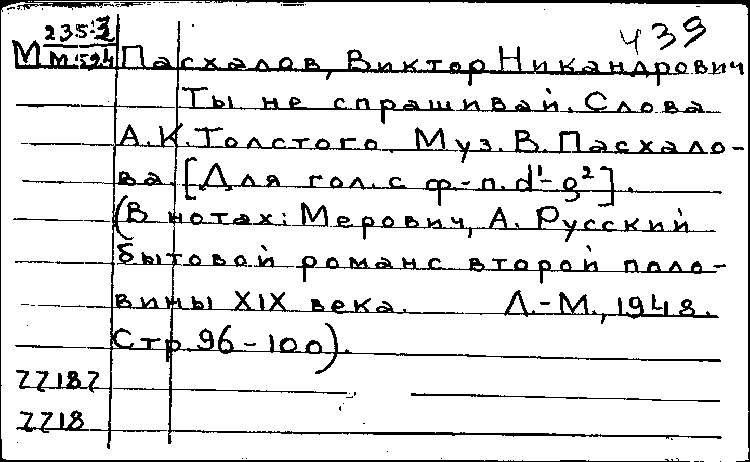 235-3 439
М М-594 Пасхалов, Виктор Никандрович
Ты не спрашивай. Слова
А.К. Толстого. Муз. В. Пасхало-
ва. [Для гол. с ф.-п. d¹-g²].
(В нотах: Мерович, А. Русский
бытовой романс второй поло-
вины XIX века. Л.-М., 1948.
Стр. 96-100).
77187
7718